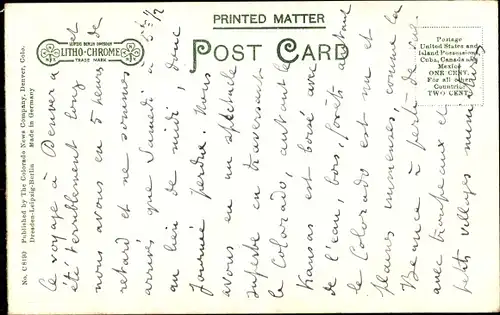 PRINTED MATTER
POST CARD
LEIPZIG BERLIN DRESDEN
LITHO-CHROME
TRADE MARK
Postage
United States and
Island Possessions
Cuba, Canada and
Mexico
ONE CENT.
For all other
Countries
TWO CENT.
No. C8199 Published by The Colorado News Company, Denver, Colo.
Dresden-Leipzig-Berlin Made in Germany
Ce voyage à Denver a
été terriblement long et
nous avons eu 5 heures de
retard et ne sommes
arrivés que Samedi à 5h 1/2
au lieu de midi donc
journée perdue. Nous
avons eu un spectacle
superbe en traversant
le Colorado, autant le
Kansas est boisé avec
de l'eau, bois, forêts, autant
le Colorado est nu et
plaines immenses comme la
Beauce à perte de vue
avec troupeaux et
petits villages